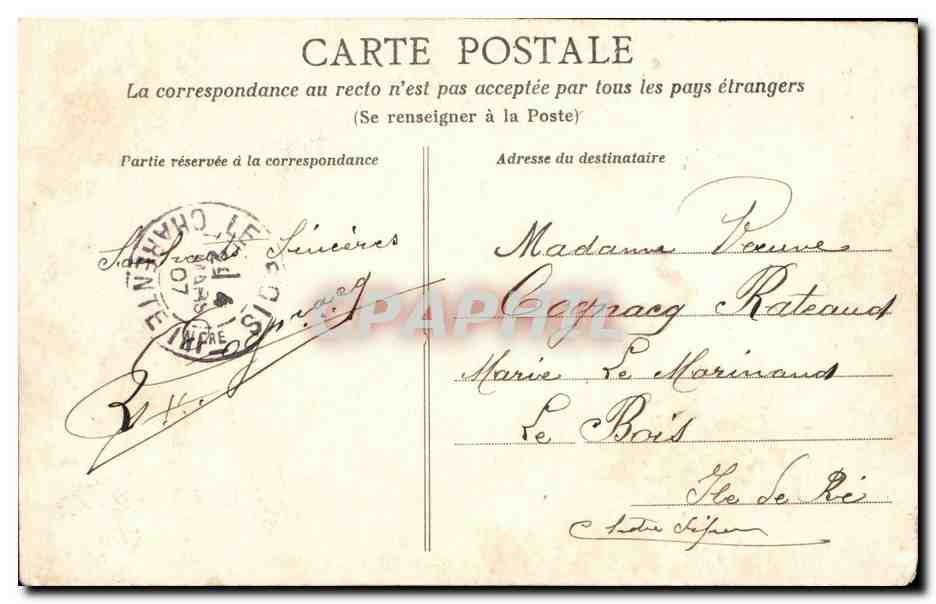 CARTE POSTALE
La correspondance au recto n'est pas acceptée par tous les pays étrangers
(Se renseigner à la Poste)
Partie réservée à la correspondance
Sincères
LE BOIS
CHARENTE INFRE
4
MARS
07
Adresse du destinataire
Madame Veuve
Cognacq Rateaud
Marie Le Marinaud
Le Bois
Ile de Ré
CPAPHIL